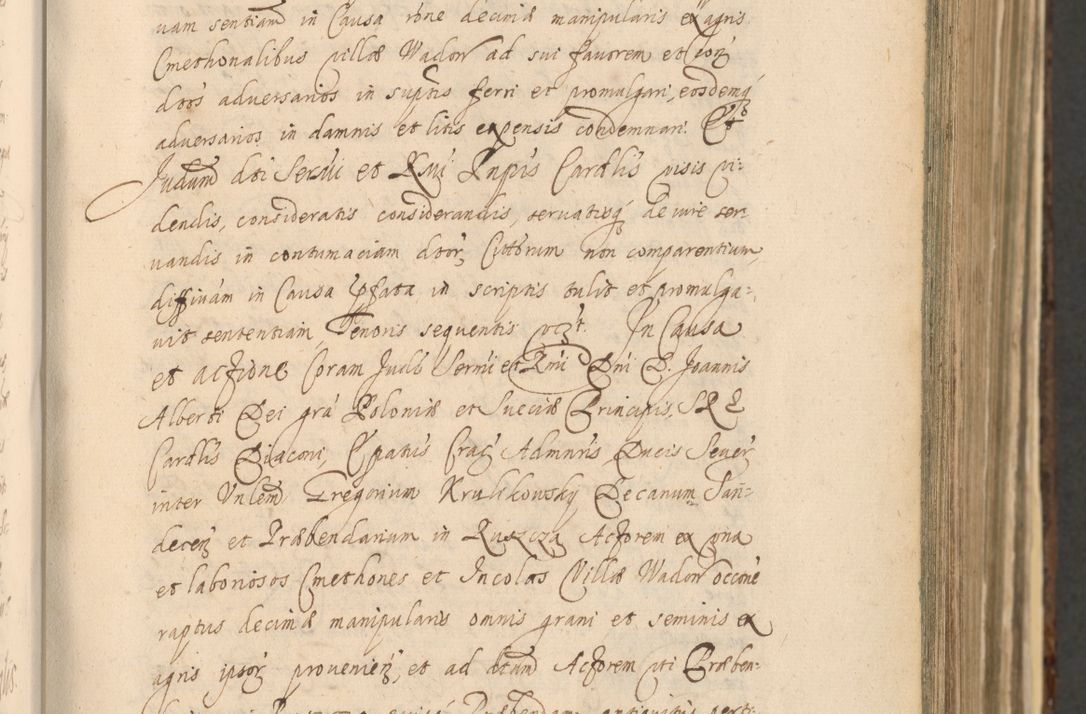 uam sentiam in Causa rõne decimæ manipularis ex agris
Cmethonalibus villæ Wadow ad sui fauorem et con
dtos aduersarios in suptis ferri et promulgari, eosdemq
aduersarios in damnis et litis expensis condemnari. Et
Judicium dti Sermi et Rmi Papis Cardlis visis vi:
dendis, consideratis considerandis, seruatisq de iure ser:
uandis in contumaciam dtor Cittorum non comparentium,
diffinam in Causa pfata in scriptis tulit et promulga:
uit sententiam, Tenoris sequentis In Causa
et actione Coram Judò Sermi et Rmi Dni D. Joannis
Alberti Dei gra Poloniæ et Sueciæ Principis, S R E
Cardlis Diaconi, Epatus Crac Admnris, Ducis Seuer
inter Vnlem Gregorium Krulikowsky Decanum San:
decen et Præbendarium in Ruszcza Actorem ex vna
et laboriosos Cmethones et Incolas Villæ Wadow occone
raptus decimæ manipularis omnis grani et seminis ex
agris ipsor prouenien, et ad dtum Actorem vti Præben: